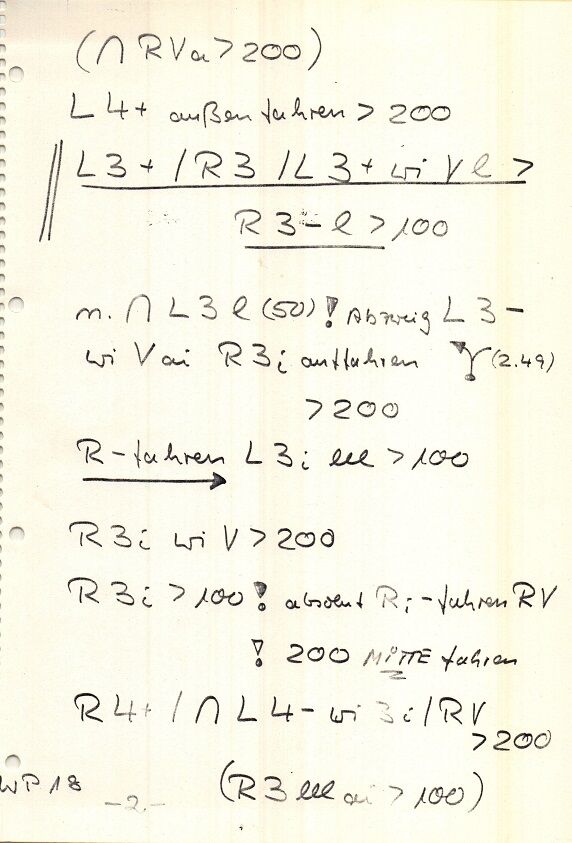 (∩ RVa > 200)
L4+ außen fahren > 200
L3+ / R3 / L3+ wi V l >
R3-l > 100
n. ∩ L3 l (50) ! Abzweig L3-
wi V ai R3i auffahren (2.49)
> 200
R-fahren L3i lll > 100
R3i wi V > 200
R3i > 100 ! absolut Ri-fahren RV
! 200 MITTE fahren
R4+ / ∩ L4- wi 3i / RV
> 200
WP 18 -2.- (R3 lll ai > 100)